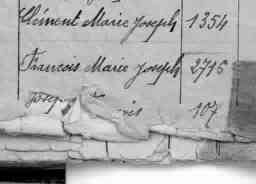 Clément Marie Joseph 1354
François Marie Joseph 2715
107